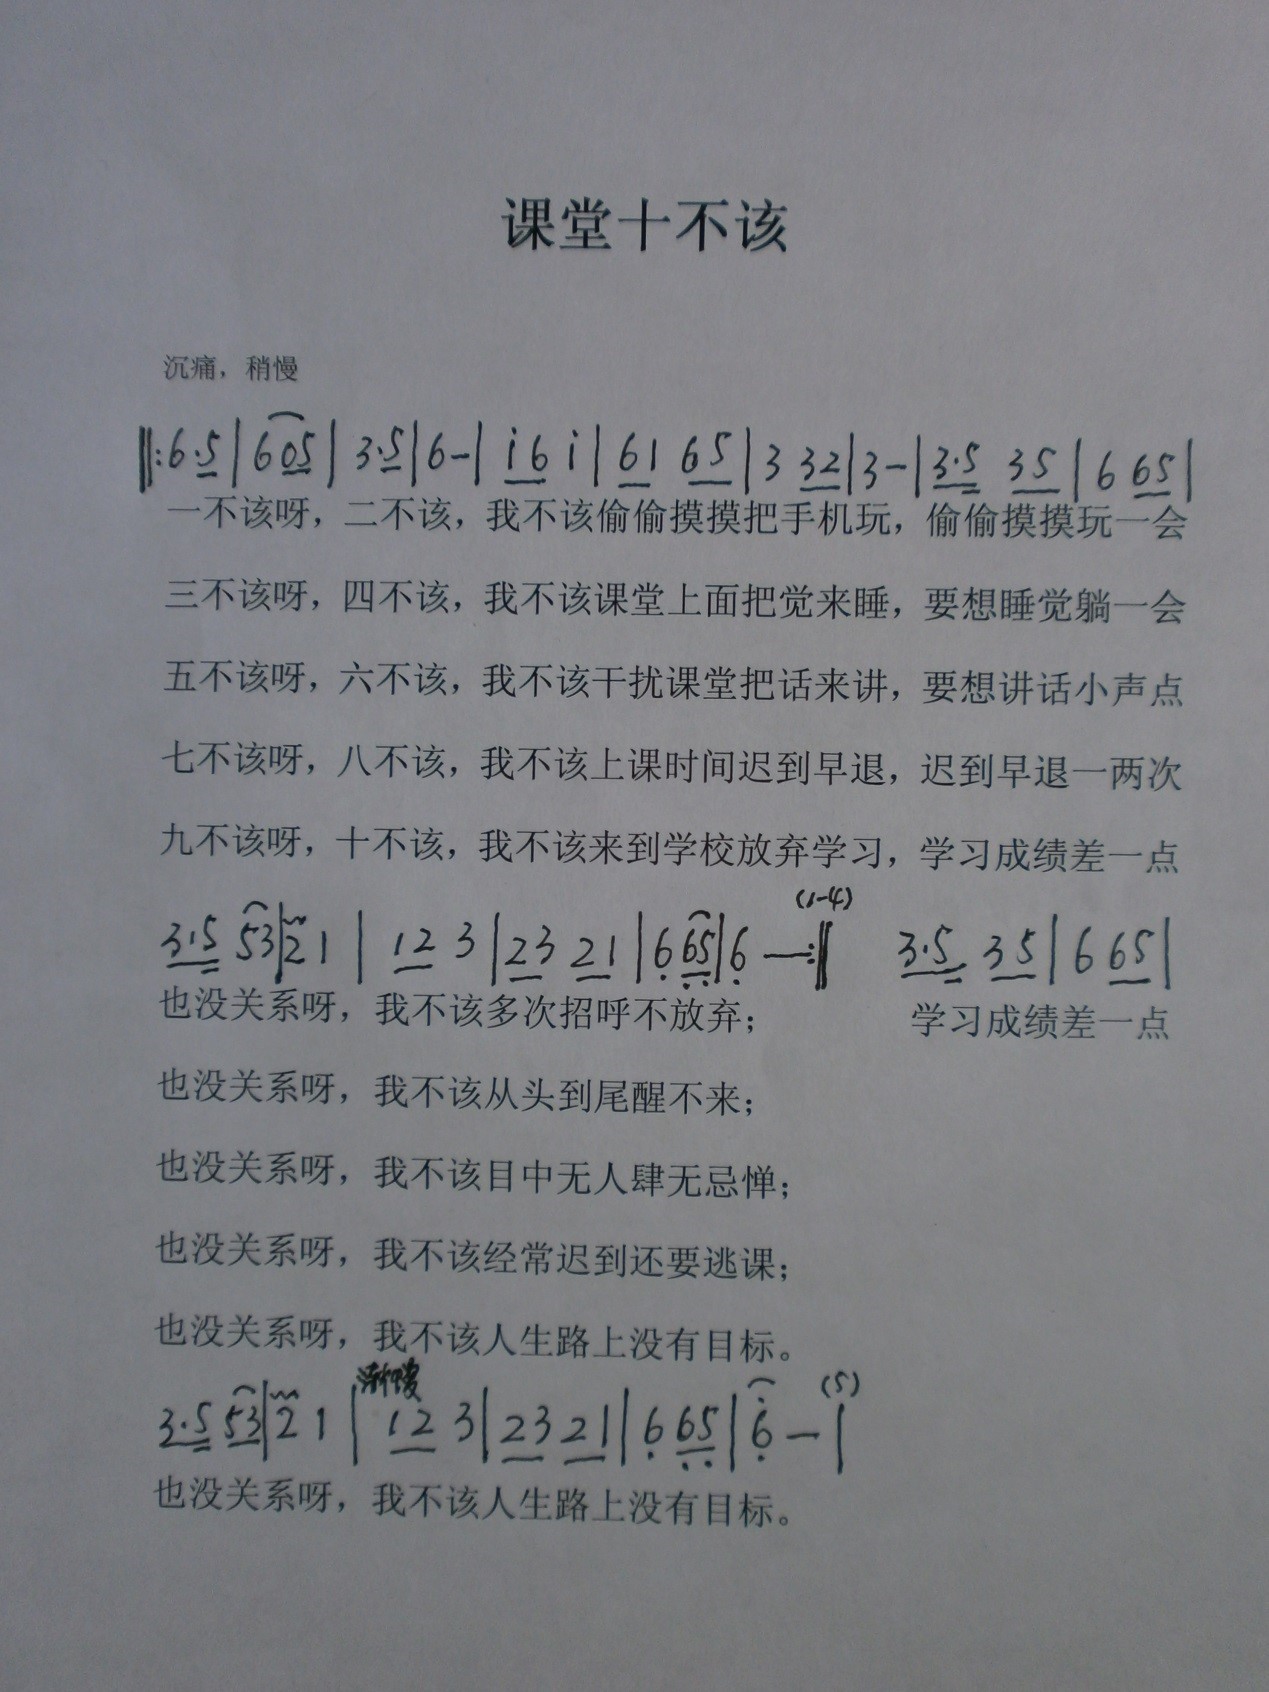 课堂十不该
沉痛，稍慢
‖:6·5|6 05|3·5|6-|i6 i|61 65|3 32|3-|3·5 35|6 65|
一不该呀，二不该，我不该偷偷摸摸把手机玩，偷偷摸摸玩一会
三不该呀，四不该，我不该课堂上面把觉来睡，要想睡觉躺一会
五不该呀，六不该，我不该干扰课堂把话来讲，要想讲话小声点
七不该呀，八不该，我不该上课时间迟到早退，迟到早退一两次
九不该呀，十不该，我不该来到学校放弃学习，学习成绩差一点
(1-4)
3·5 53|2 1|12 3|23 21|6 65|6 —:‖ 3·5 35|6 65|
也没关系呀，我不该多次招呼不放弃； 学习成绩差一点
也没关系呀，我不该从头到尾醒不来；
也没关系呀，我不该目中无人肆无忌惮；
也没关系呀，我不该经常迟到还要逃课；
也没关系呀，我不该人生路上没有目标。
渐慢 (5)
3·5 53|2 1|12 3|23 21|6 65|6 —|
也没关系呀，我不该人生路上没有目标。